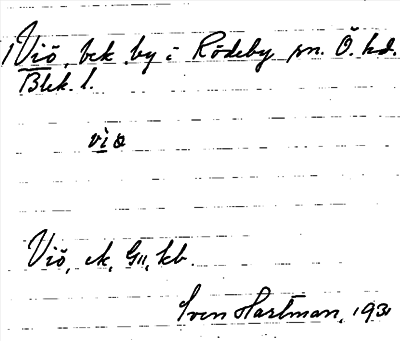 1) Viö, bek. by i Rödeby sn. Ö. hd.
Blek. l.
viə
Viö, ek, GII, kb.
Sven Hartman, 193